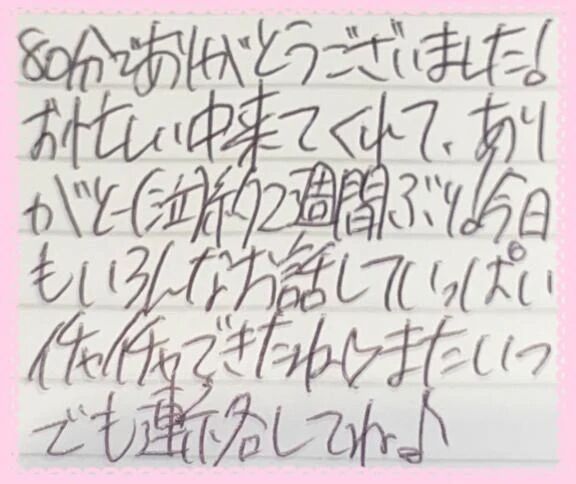 80分でありがとうございました!
お忙しい中来てくれて、あり
がとー(泣)約2週間ぶり!今日
もいろんなお話していっぱい
イチャイチャできたね♡またいつ
でも連絡してね♪